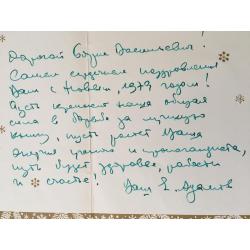 Дорогой Борис Васильевич!
Самые сердечные поздравления
Вам с Новым, 1979 годом!
Пусть крепнет наша общая
сила в борьбе за лучшую
книгу, пусть растёт Ваша
энергия учёного и пропагандиста,
пусть будет здоровье, радости
и счастье!
Ваш Е.